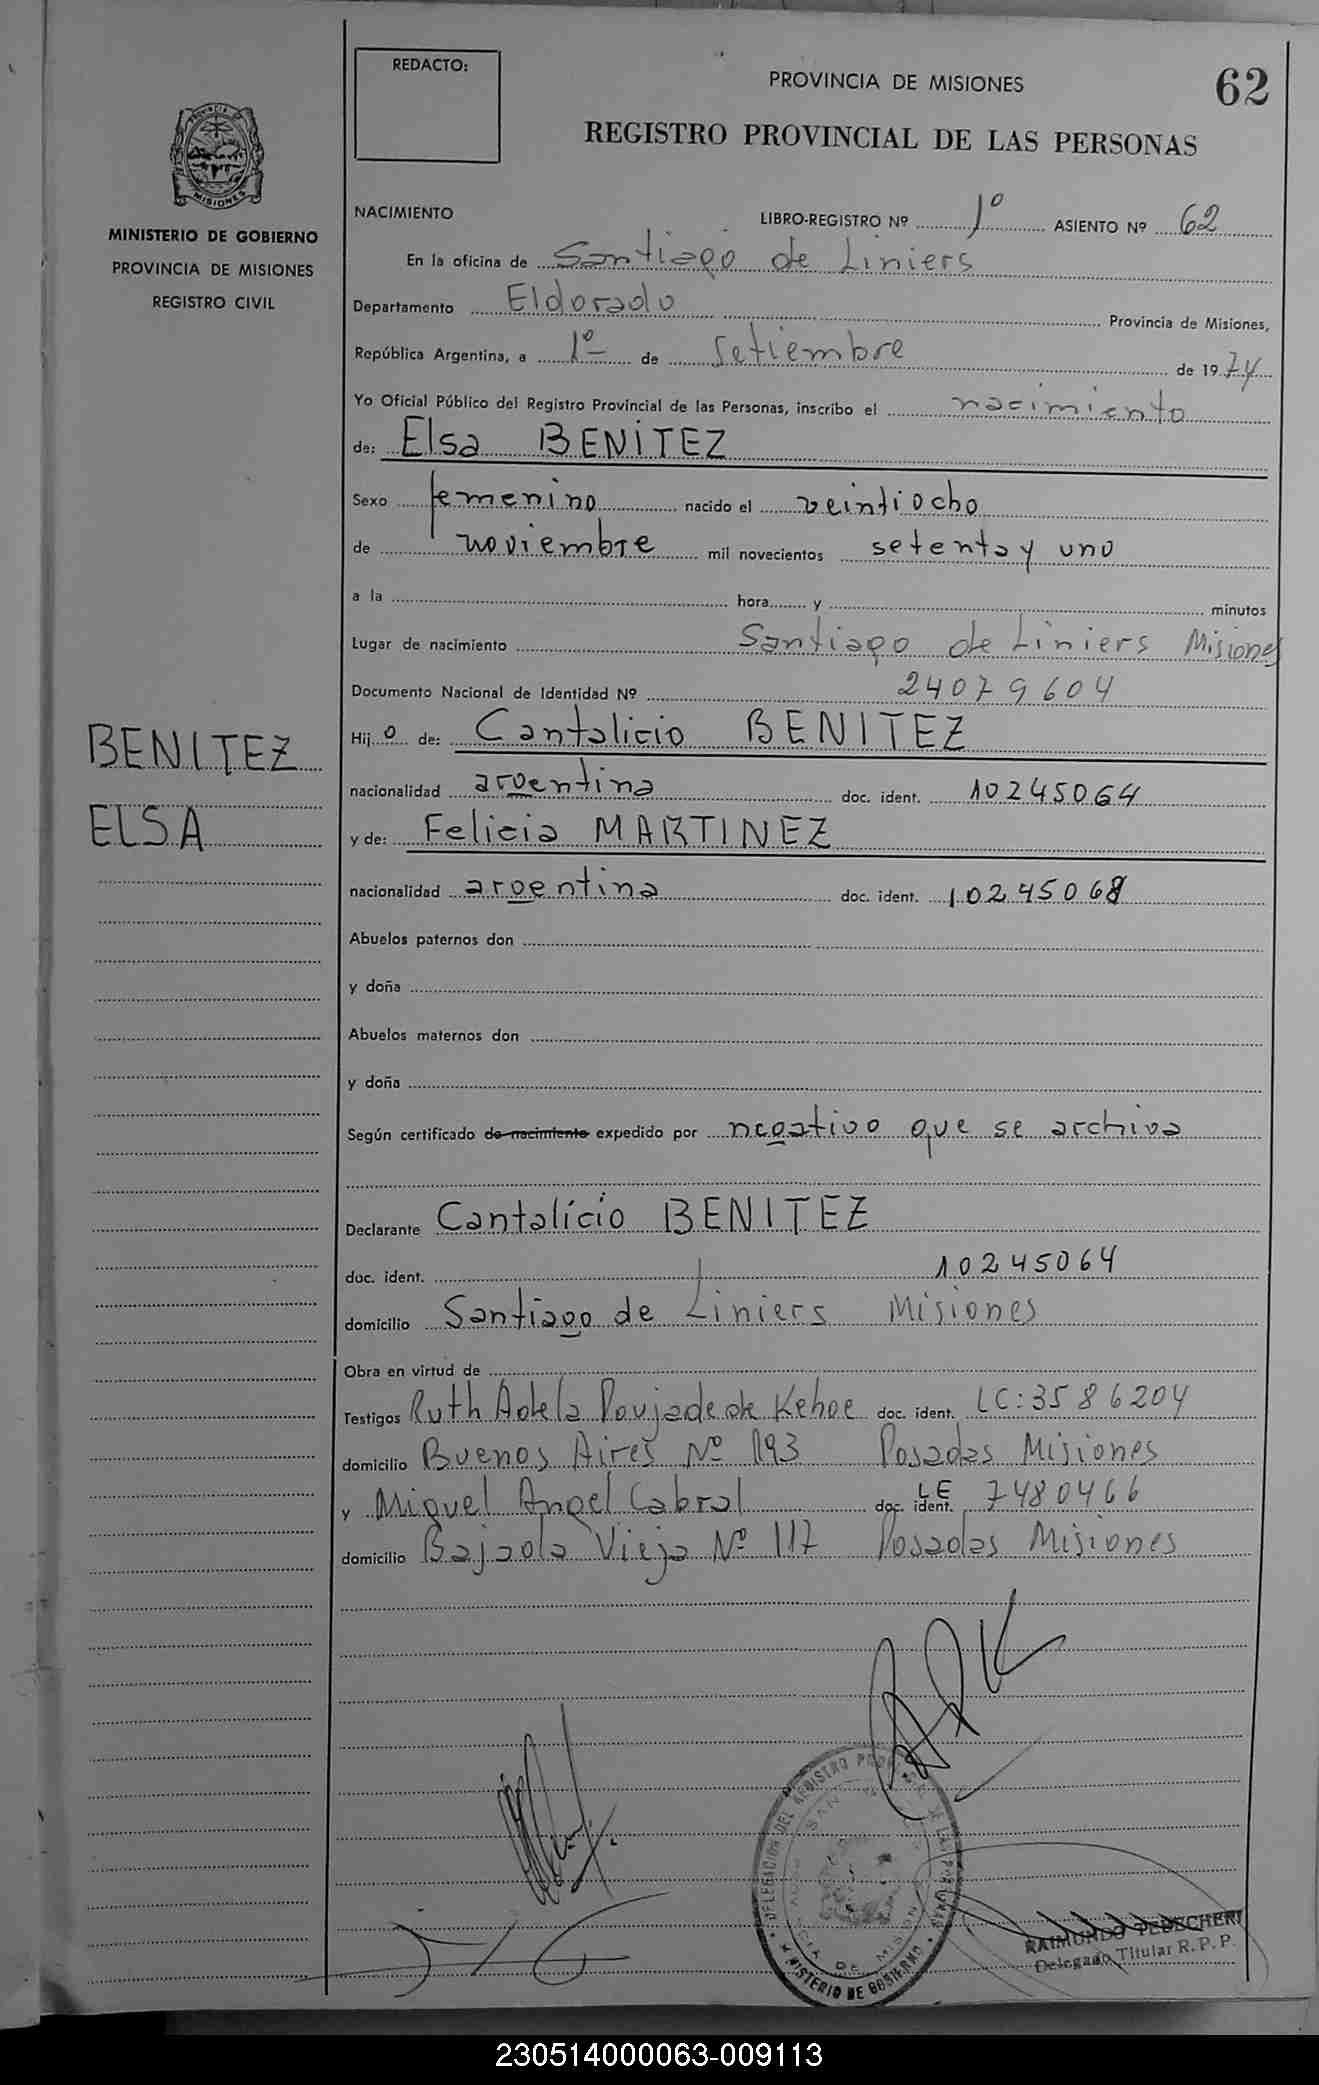 REDACTO:
PROVINCIA DE MISIONES
62
REGISTRO PROVINCIAL DE LAS PERSONAS
MISIONES
MINISTERIO DE GOBIERNO
PROVINCIA DE MISIONES
REGISTRO CIVIL
NACIMIENTO LIBRO-REGISTRO Nº 1º ASIENTO Nº 62
En la oficina de Santiago de Liniers
Departamento Eldorado Provincia de Misiones,
República Argentina, a 1º de Setiembre de 1974
Yo Oficial Público del Registro Provincial de las Personas, inscribo el nacimiento
de: Elsa BENITEZ
Sexo femenino nacido el veintiocho
de noviembre mil novecientos setenta y uno
a la hora y minutos
Lugar de nacimiento Santiago de Liniers Misiones
Documento Nacional de Identidad Nº 24079604
BENITEZ
ELSA
Hijo de: Cantalicio BENITEZ
nacionalidad argentina doc. ident. 10245064
y de: Felicia MARTINEZ
nacionalidad argentina doc. ident. 10245068
Abuelos paternos don
y doña
Abuelos maternos don
y doña
Según certificado de nacimiento expedido por negativo que se archiva
Declarante Cantalício BENITEZ
doc. ident. 10245064
domicilio Santiago de Liniers Misiones
Obra en virtud de
Testigos Ruth Adela Poujade de Kehoe doc. ident. LC: 3586204
domicilio Buenos Aires Nº 193 Posadas Misiones
y Miguel Angel Cabral doc. ident. LE 7480466
domicilio Bajada Vieja Nº 117 Posadas Misiones
DELEGACION DEL REGISTRO
MINISTERIO DE GOBIERNO
RAIMUNDO
Delegado Titular R. P. P.
230514000063-009113